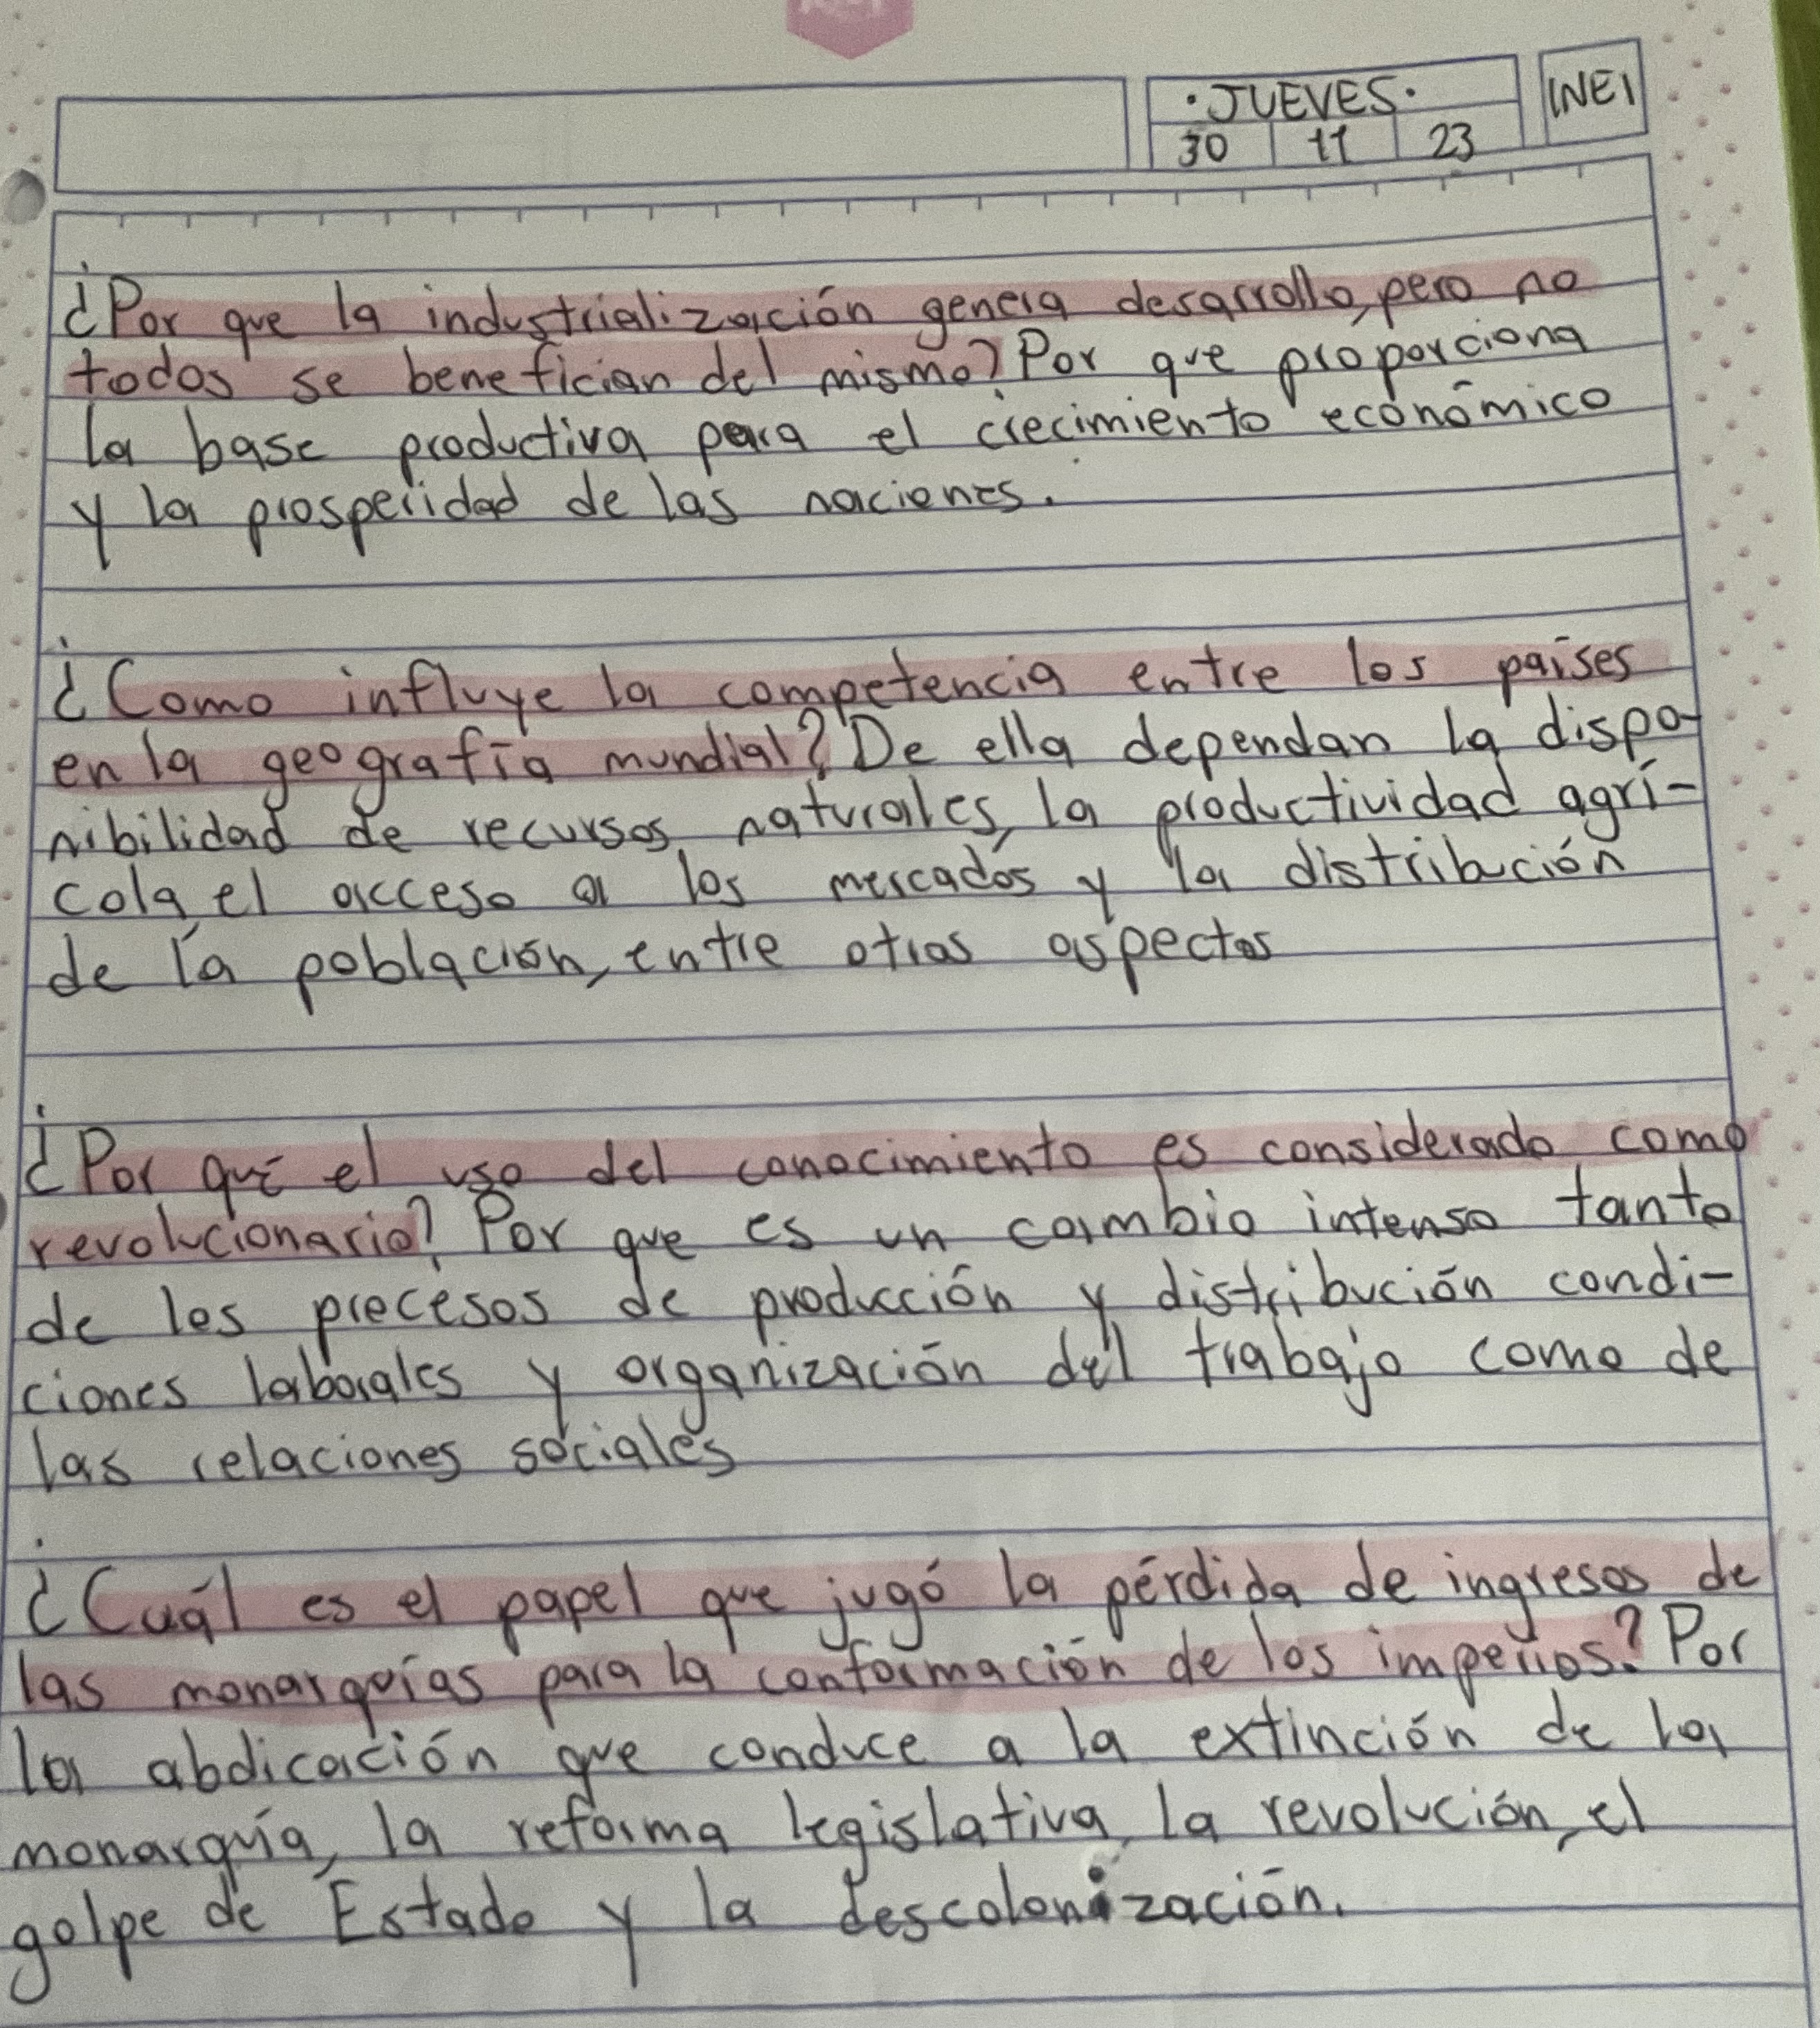 ·JUEVES·
30 11 23
INEI
¿Por que la industrialización genera desarrollo, pero no
todos se benefician del mismo? Por que proporciona
la base productiva para el crecimiento económico
y la prosperidad de las naciones.
¿Como influye la competencia entre los países
en la geografía mundial? De ella dependan la dispo-
nibilidad de recursos naturales, la productividad agrí-
cola, el acceso a los mercados y la distribución
de la población, entre otros aspectos
¿Por qué el uso del conocimiento es considerado como
revolucionario? Por que es un cambio intenso tanto
de los procesos de producción y distribución condi-
ciones laborales y organización del trabajo como de
las relaciones sociales
¿Cuál es el papel que jugó la pérdida de ingresos de
las monarquías para la conformación de los imperios? Por
la abdicación que conduce a la extinción de la
monarquía, la reforma legislativa, la revolución, el
golpe de Estado y la descolonización.